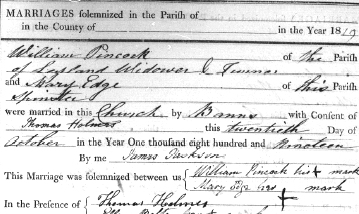 MARRIAGES solemnized in the Parish of
in the County of in the Year 1819
William Pincock of the Parish
of Leyland Widower &
and Mary Edge of this Parish
Spinster
were married in this Church by Banns with Consent of
Thomas Holmes this twentieth Day of
October in the Year One thousand eight hundred and Nineteen
By me James Jackson
This Marriage was solemnized between us { William Pincock his + mark
Mary Edge her + mark
In the Presence of { Thomas Holmes